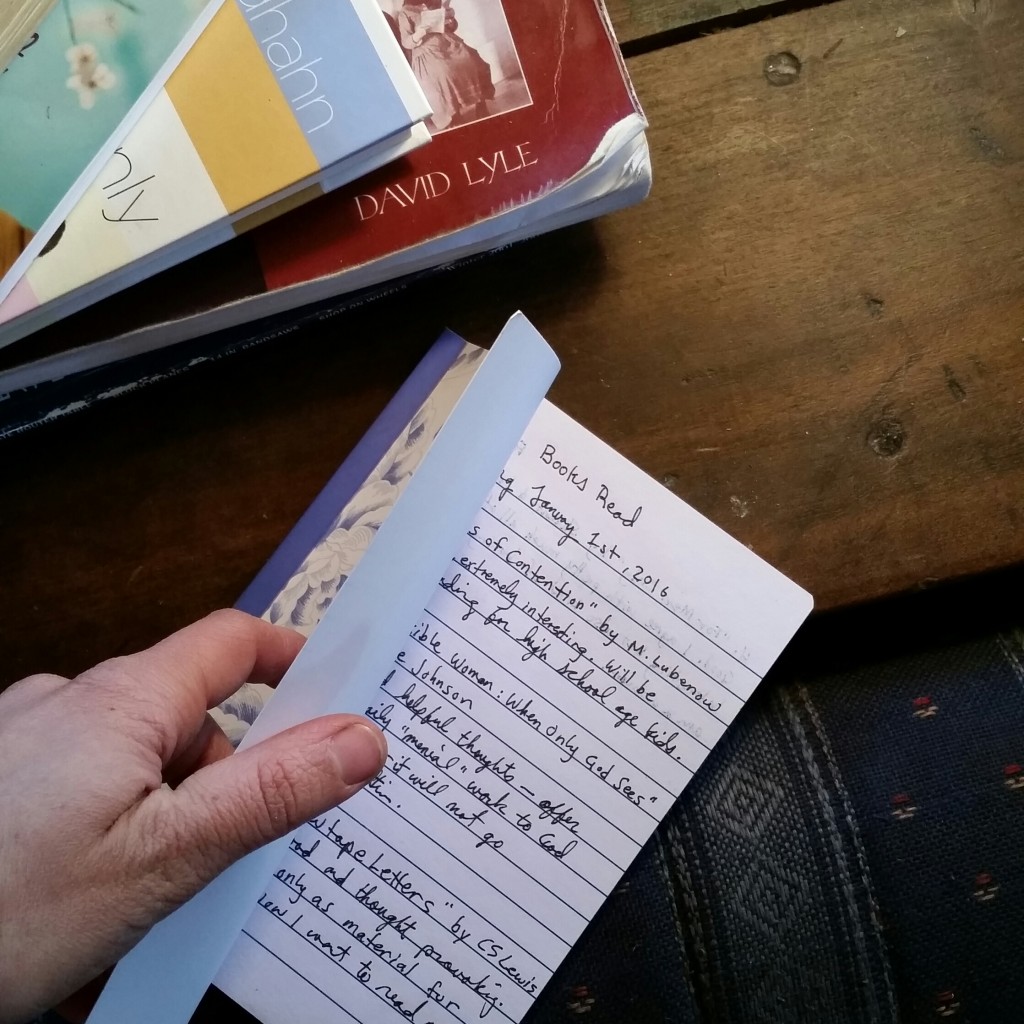 hahn
nly
DAVID LYLE
SHOP ON WHEELS
Books Read
ng January 1st, 2016
s of Contention" by M. Lubenow
extremely interesting. Will be
ding for high school age kids.
ible Woman: When Only God Sees"
e Johnson
d helpful thoughts - offer
aily "menial" work to God
it will not go
w tape Letters" by CS Lewis
od and thought provoking.
only as material for
I want to read